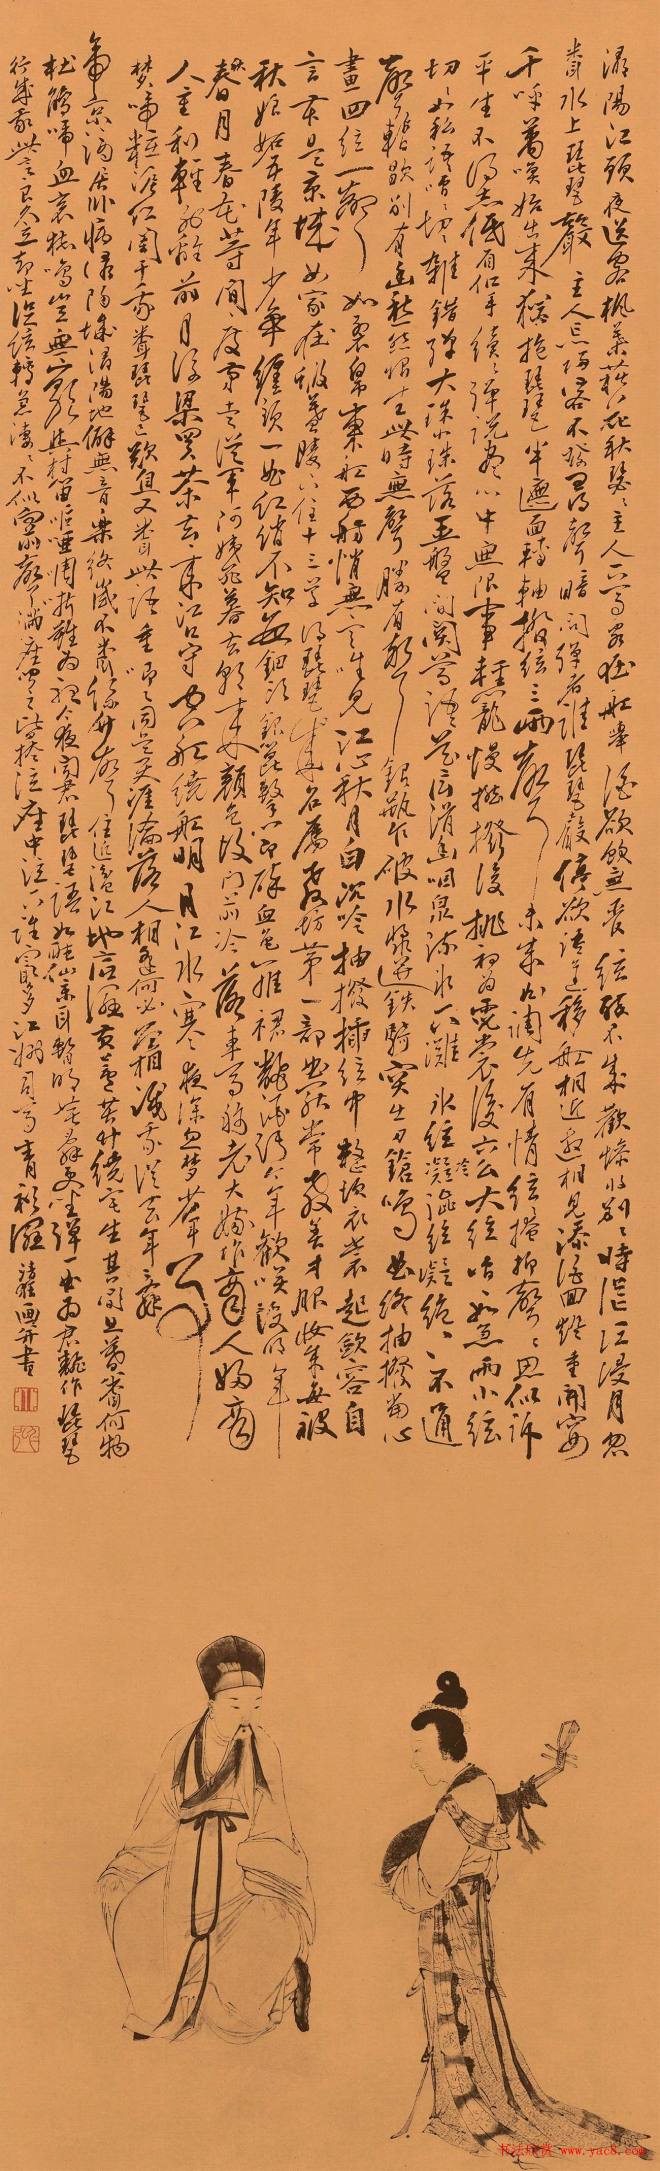 潯陽江頭夜送客楓葉荻花秋瑟瑟主人下馬客在船舉酒欲飲無管絃醉不成歡慘將別別時茫茫江浸月忽
聞水上琵琶聲主人忘歸客不發尋聲暗問彈者誰琵琶聲停欲語遲移船相近邀相見添酒回燈重開宴
千呼萬喚始出來猶抱琵琶半遮面轉軸撥絃三兩聲未成曲調先有情絃絃掩抑聲聲思似訴
平生不得志低眉信手續續彈說盡心中無限事輕攏慢撚撥復挑初為霓裳後六幺大絃嘈嘈如急雨小絃
切切如私語嘈嘈切切雜錯彈大珠小珠落玉盤間關鶯語花底滑幽咽泉流水下灘氷絃凝澀絃凝絕凝絕不通
聲暫歇別有幽愁暗恨生此時無聲勝有聲銀瓶乍破水漿迸鐵騎突出刀鎗鳴曲終抽撥當心
畫四絃一聲如裂帛東船西舫悄無言唯見江心秋月白沉吟抽撥插絃中整頓衣裳起斂容自
言本是京城女家在蝦蟇陵下住十三學得琵琶成名屬教坊第一部曲罷常教善才服妝成每被
秋娘妬五陵年少爭纏頭一曲紅綃不知數鈿頭銀篦擊節碎血色羅裙翻酒污今年歡笑復明年
秋月春花等閒度弟走從軍阿姨死暮去朝來顏色故門前冷落車馬稀老大嫁作商人婦商
人重利輕別離前月浮梁買茶去去來江口守空船繞船明月江水寒夜深忽夢少年事
夢啼粧淚紅闌干我聞琵琶已歎息又聞此語重唧唧同是天涯淪落人相逢何必曾相識我從去年辭
帝京謫居臥病潯陽城潯陽地僻無音樂終歲不聞絲竹聲住近湓江地低濕黃蘆苦竹繞宅生其間旦暮聞何物
杜鵑啼血哀猿鳴豈無山歌與村笛嘔啞嘲哳難為聽今夜聞君琵琶語如聽仙樂耳暫明莫辭更坐彈一曲為君翻作琵琶
行感我此言良久立却坐促絃絃轉急淒淒不似向前聲滿座聞之皆掩泣座中泣下誰最多江州司馬青衫濕 畫并書
书法欣赏 www.yac8.com